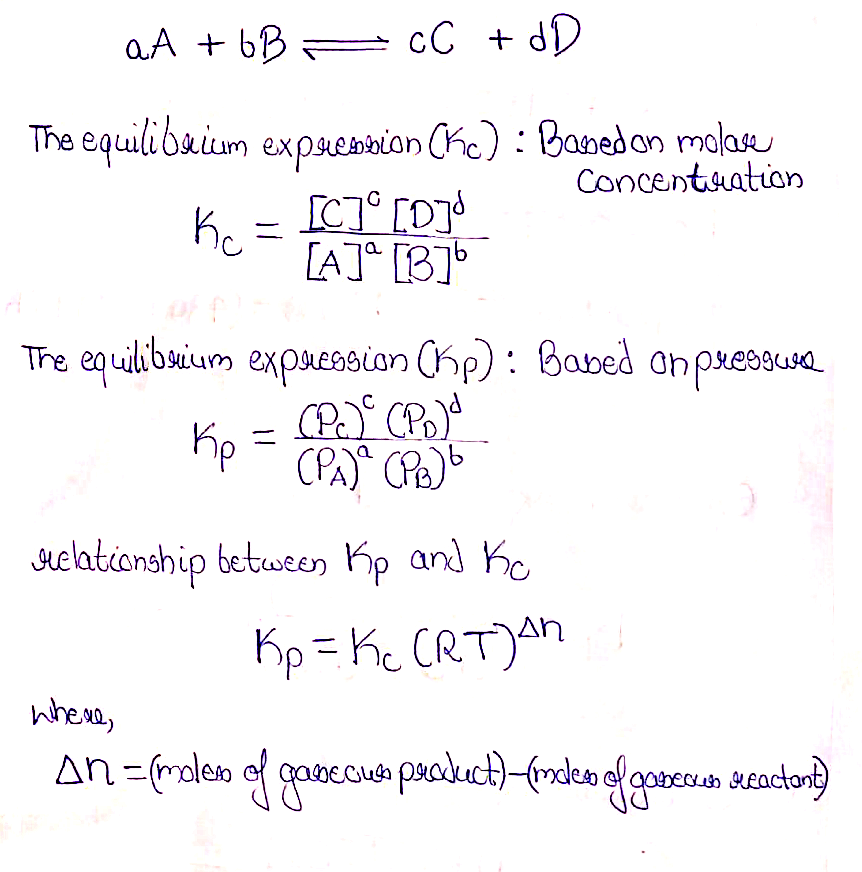 aA + bB ⇌ cC + dD
The equilibrium expression (Kc) : Based on molar
concentration
Kc = [C]^c [D]^d / [A]^a [B]^b
The equilibrium expression (Kp) : Based on pressure
Kp = (P_C)^c (P_D)^d / (P_A)^a (P_B)^b
relationship between Kp and Kc
Kp = Kc (RT)^Δn
where,
Δn = (moles of gaseous product) - (moles of gaseous reactant)